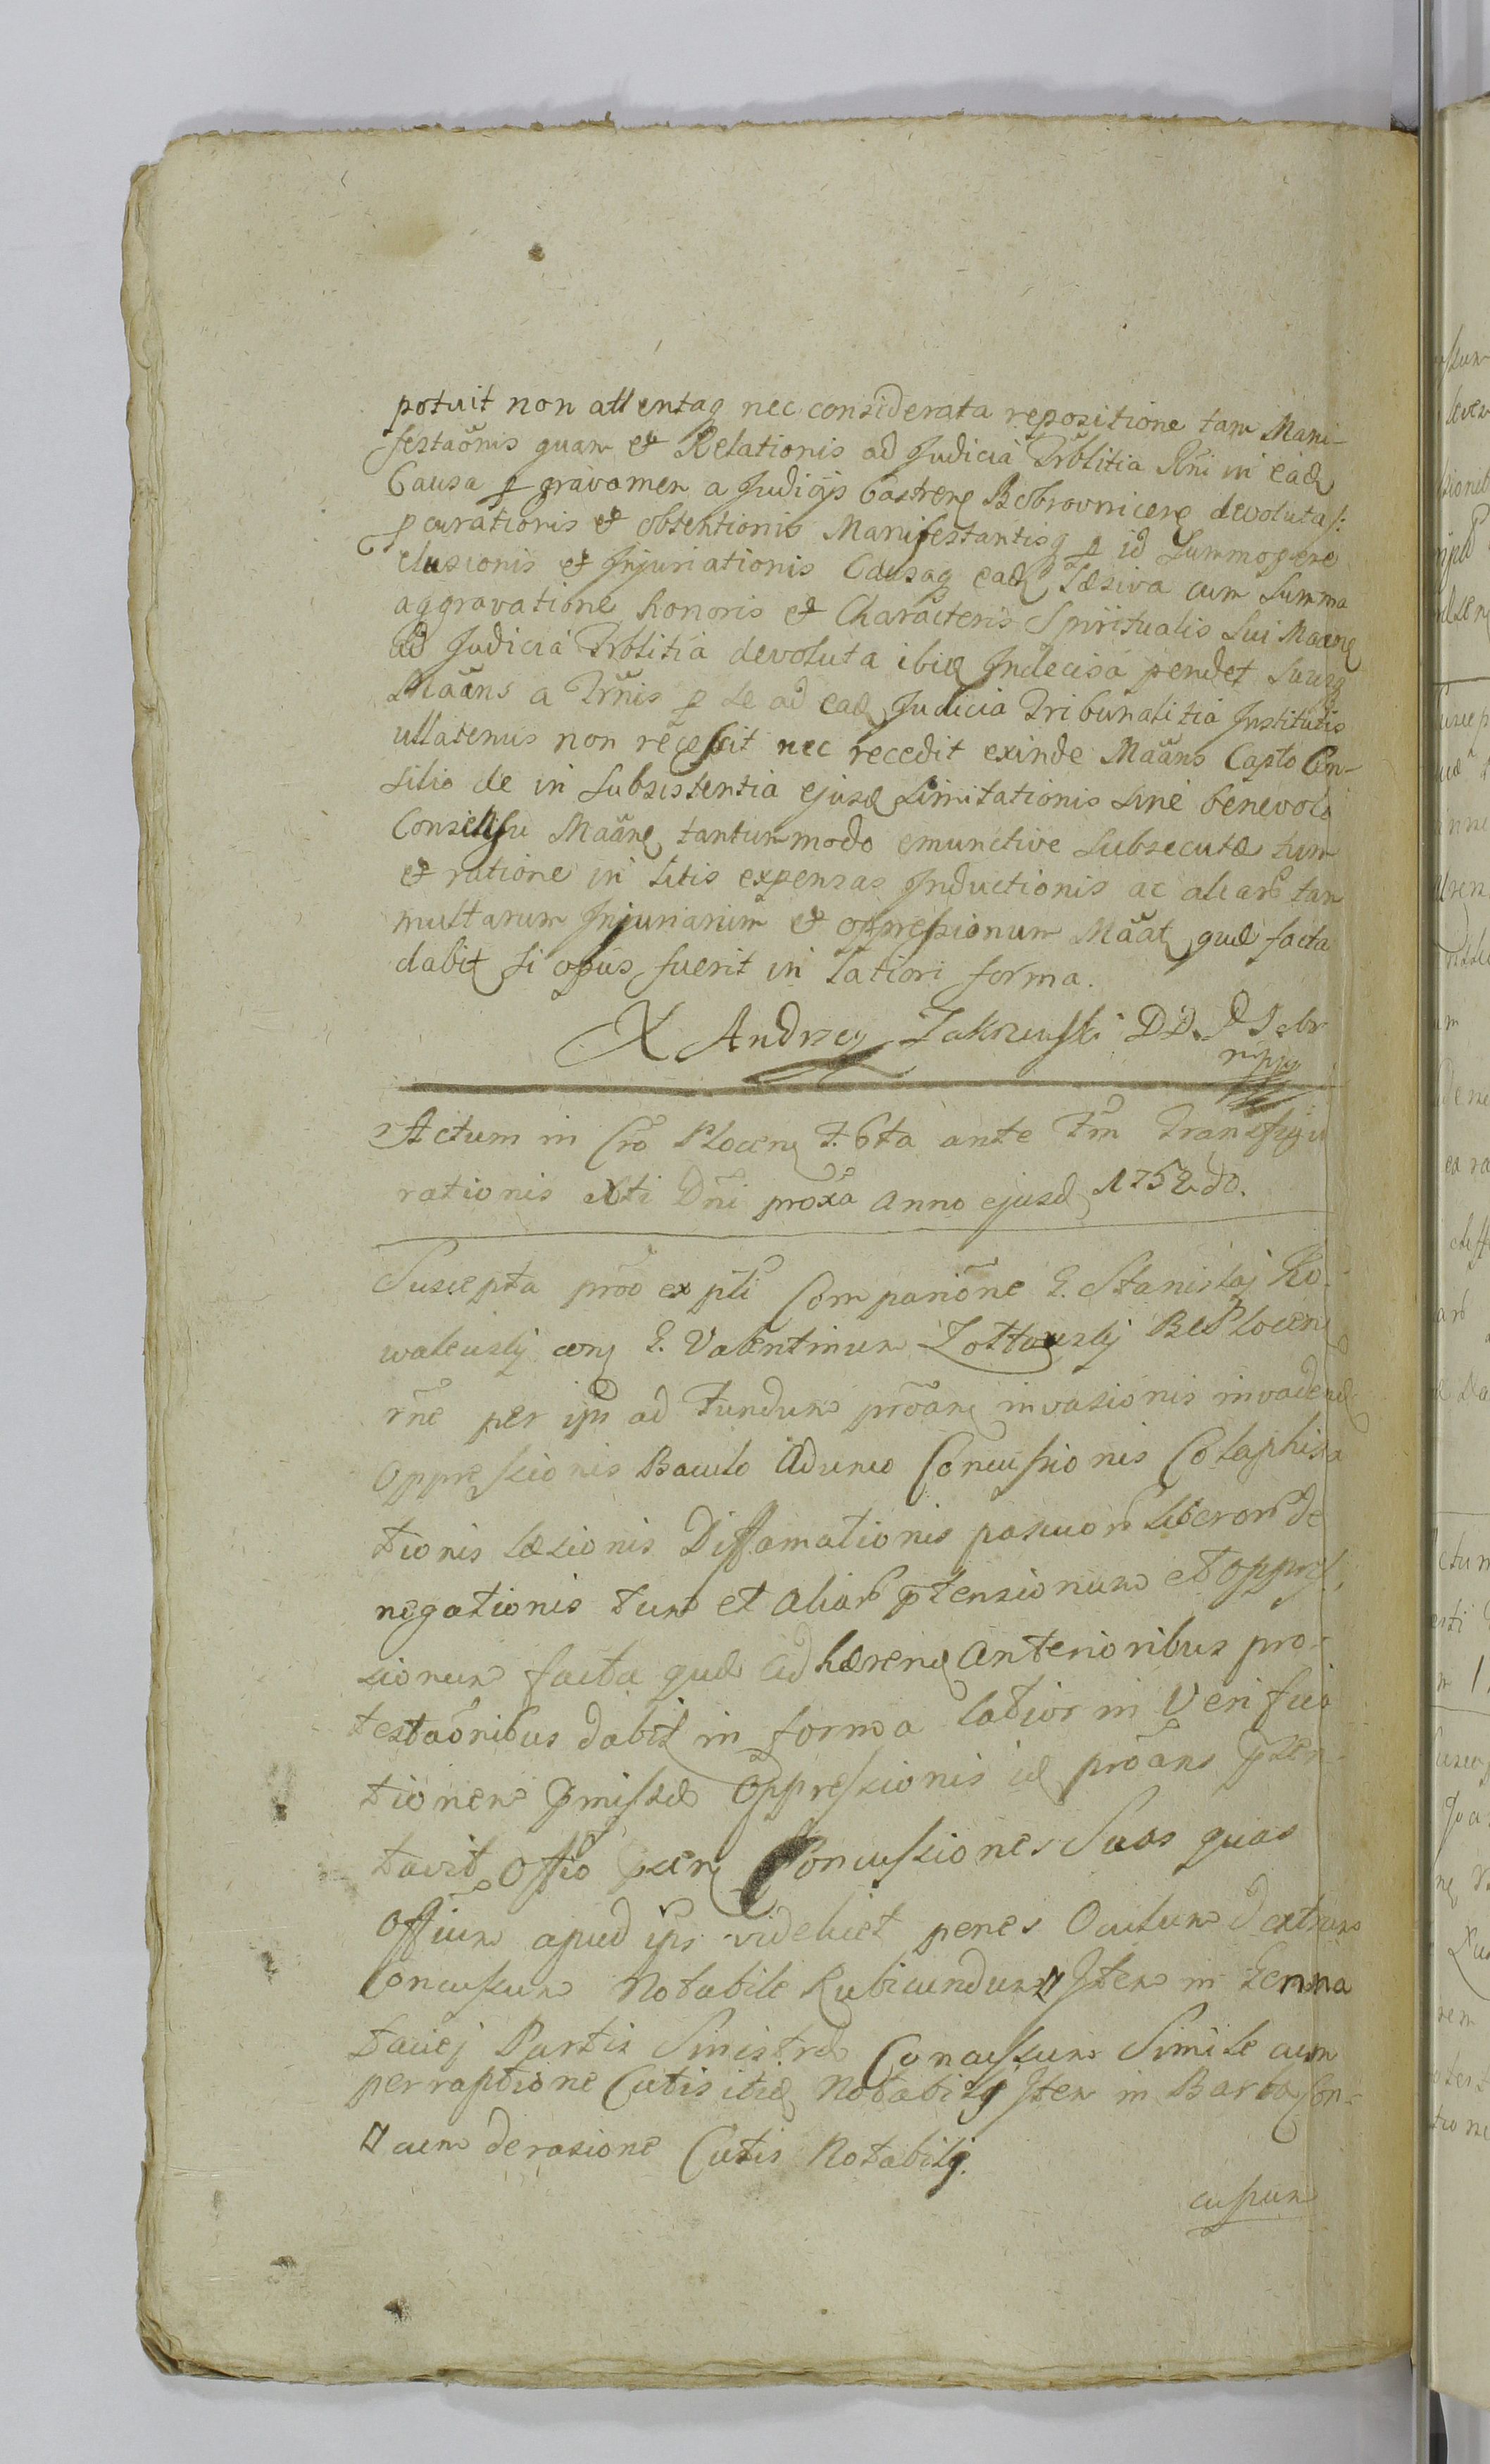 potuit non attentaq nec considerata repositione tam Mani-
festaõnis quam et Relationis ad Judicia Trbltitia Rñi in ead
Causa p gravamen a Judicijs Castren Bobrovnicen devoluta /:
pcurationis et obtentionis Manifestantisq p id Summopere
elusionis et Injuriationis Causaq ead Læsiva cum Summa
aggravatione honoris et Characteris Spiritualis Sui Maanē
ad Judicia Trbltitia devoluta ibiq Indecisa pendet
Maãns a Trñis p se ad ead Judicia Tribunalitia Institutis
ullatenus non recessit nec recedit exinde Maãns Capto Con-
silio de in Subsistentia ejusd Limitationis sine benevolo
Consensu Maãnē tantummodo emunctive Subsecutæ tum
et ratione in Litis expensas Inductionis ac aliar tam
multarum Injuriarum et oppressionum Mãat quæ facta
dabit si opus fuerit in latiori forma.
X Andrzey Zakrzewski DD.
mppa
Actum in Cro Plocen F. 6ta ante Fm Transfigu
rationis Xti Dñi proxa Anno ejusd 1752do.
Suscepta pro ex pti Comparione G. Stanislaj Ko-
walewskj con G. Valentinum Zottowskj BC Plocen
rñe per ips ad Fundum proãn invasionis invadend
Oppressionis Baculo Adunco Concussionis Colaphisa
tionis Læsionis Diffamationis pascuor Liberor de
negationis tum et aliar ptensionum et Oppres-
sionum facta quæ adhæren anterioribus pro-
testaõnibus dabit in forma latior in Verifica
tionem pmissæ Oppressionis id proãns psen-
tavit Offo pten Concussiones Suas quas
Offium apud ips videlicet penes Oculum dextrum
Concussum Notabile Rubicundum ⌗ Item in Genna
faciej Partis Sinistræ Concussum Simile cum
perraptione Cutis itid Notabilj Item in Barba Con-
⌗ cum derasione Cutis Notabilj.
cussum